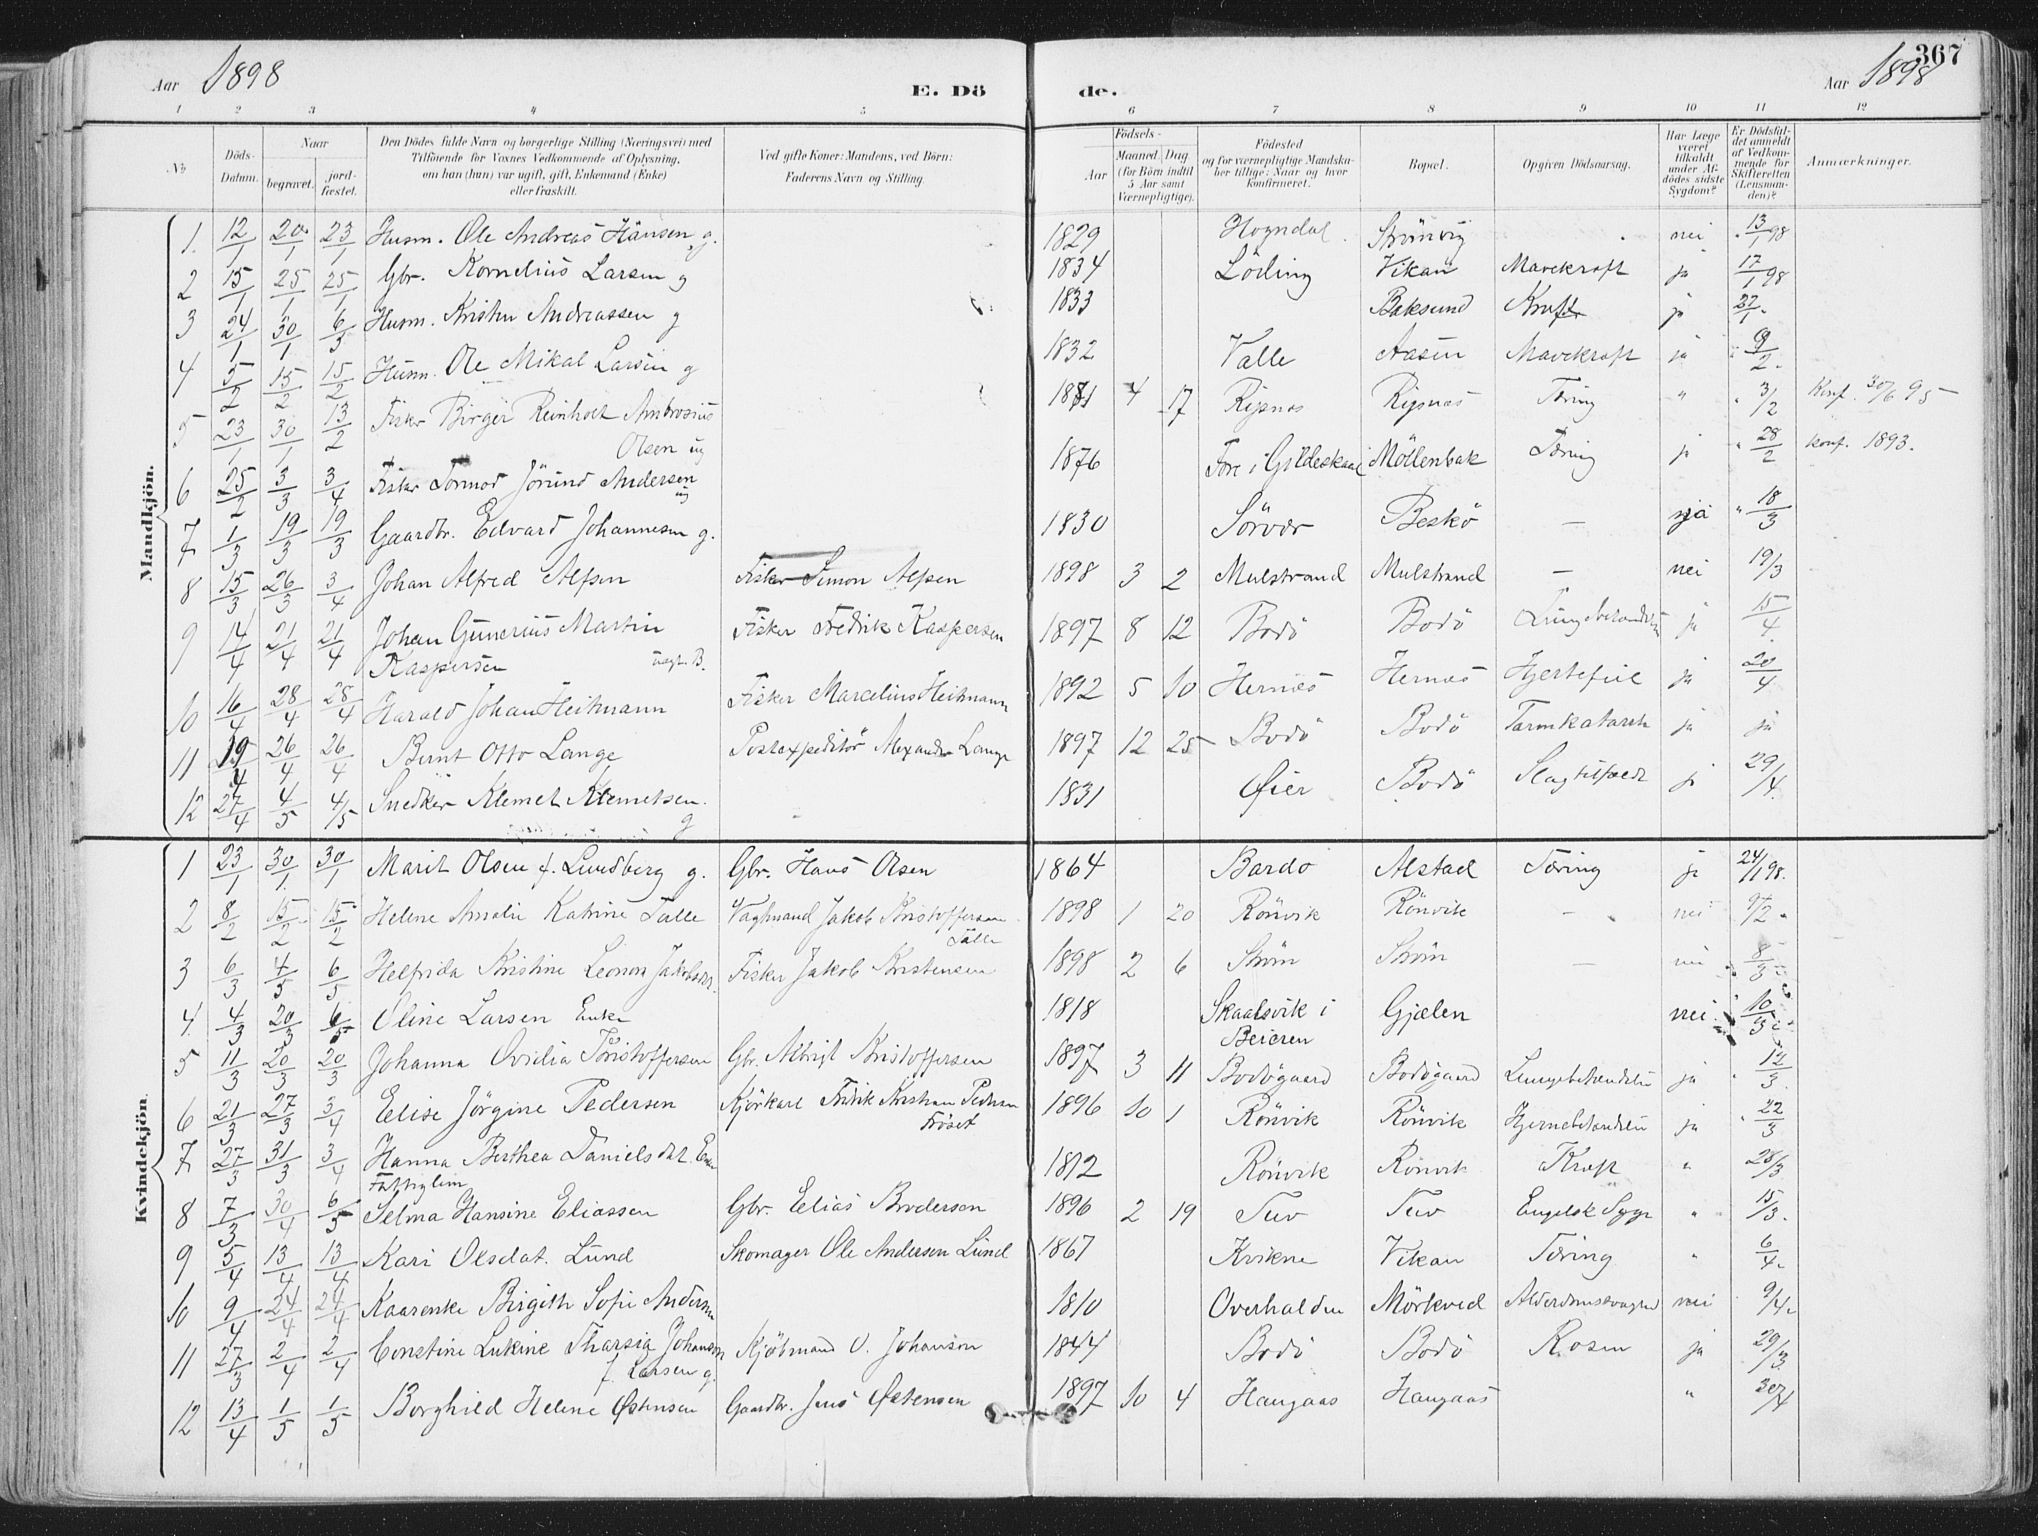 Aar 1898
E. Dö
de.
Aar 1898
367
1 2 3 4 5 6 7 8 9 10 11 12
No.
Döds-Datum.
Naar
begravet.
jord-fæstet.
Den Dödes fulde Navn og borgerlige Stilling (Næringsvei) med
Tilföiende for Voxnes Vedkommende af Oplysning,
om han (hun) var ugift, gift, Enkemand (Enke)
eller fraskilt.
Ved gifte Koner: Mandens, ved Börn:
Faderens Navn og Stilling.
Födsels-
Aar
Maaned. Dag
(for Börn indtil
5 Aar samt
Værnepligtige).
Födested
og for værnepligtige Mandska-
ber tillige: Naar og hvor
konfirmeret.
Bopæl.
Opgiven Dödsaarsag.
Har Læge
været
tilkaldt
under Af-
dödes sidste
Sygdom?
Er Dödsfal-
det anmeldt
af Vedkom-
mende for
Skifteretten
(Lensman-
den)?
Anmærkninger.
Mandkjön.
1. 12/1 20/1 23/1 Husm. Ole Andreas Hansen g. 1829 Hogndal Strömvig nei 13/1 98
2 15/1 25/1 25/1 Gbr. Kornelius Larsen g 1834 Löding Vikan Mavekræft ja 17/1 98
3 24/1 30/1 6/3 Husm. Kristen Andreassen g 1833 Baksund Kræft ja 27/1
4 5/2 15/2 15/2 Husm. Ole Mikal Larsen g 1832 Valle Aasen Mavekræft ja 9/2
5 23/1 30/1 13/2 Fisker Birger Reinholt Ambrosius 1881 4 17 Ripnes Ripnes Tæring " 3/2 Konf. 30/6 95
Olsen ug
6 25/2 3/3 3/4 Fisker Tormod Jörund Andersen ug 1876 Fore i Gildeskaal Möllenbak Tæring ja 28/2 konf. 1893.
7 1/3 19/3 19/3 Gaardbr. Edvard Johannesen g. 1830 Sörvær Beskö — ja 18/3
8 15/3 26/3 3/4 Johan Alfred Alfsen Fisker Simon Alfsen 1898 3 2 Mulstrand Mulstrand — nei 19/3
9 14/4 21/4 21/4 Johan Gunerius Martin Fisker Fredrik Kaspersen 1897 8 12 Bodö Bodö Lungebetændelse ja 15/4
Kaspersen uægt. B.
10 16/4 28/4 28/4 Harald Johan Heitmann Fisker Marcelius Heitmann 1892 5 10 Hernes Hernes Hjertefeil ja 20/4
11 19/4 26/4 26/4 Bernt Otto Lange Postexpeditör Alexander Lange 1897 12 25 Bodö Bodö Tarmkatarrh ja ja
12 27/4 4/5 4/5 Snedker Klemet Klemetsen g 1831 Øier Bodö Slagtilfælde ja 29/4
Kvindekjön.
1 23/1 30/1 30/1 Marit Olsen f. Lundberg g. Gbr. Hans Olsen 1864 Bardo Alstad Tæring ja 24/1 98.
2 8/2 15/2 15/2 Helene Amalie Katrine Tälle Vagtmand Jakob Kristoffersen 1898 1 20 Rönvik Rönvik — nei 9/2
Tälle
3 6/3 4/5 6/5 Helfrida Kristine Leonore Jakobsen Fisker Jakob Kristensen 1898 2 6 Ström Ström — nei 8/3
4. 4/3 20/3 6/5 Oline Larsen Enke 1818 Skaalsvik i Gjælen nei 10/3
Beieren
5 11/3 20/3 20/3 Johanna Ovidia Kristoffersen Gbr. Albrigt Kristoffersen 1897 3 11 Bodögaard Bodögaard Lungebetændelse ja 12/3
6 21/3 27/3 3/4 Elise Jörgine Pedersen Kjörkarl Fredrik Kristian Pedersen 1896 10 1 Rönvik Rönvik Hjernebetændelse ja 22/3
Fröset
7 27/3 31/3 3/4 Hanna Berthea Danielsdat. Enke 1812 Rönvik Rönvik Kræft " 28/3
Fattiglem
8 7/3 30/4 6/5 Selma Hansine Eliassen Gbr. Elias Brodersen 1896 2 19 Tuv Tuv Engelsk Syge " 15/3
9 5/4 13/4 13/4 Kari Olsdat. Lund Skomager Ole Andersen Lund 1867 Kvikne Vikan Tæring " 6/4
10 9/4 24/4 24/4 Kaarenke Birgith Sofie Andersen 1810 Overhalden Mörkved Alderdomssvaghed nei 9/4
11 27/3 2/4 2/4 Constine Lukine Tharsia Johanson Kjöbmand O. Johanson 1844 Bodö Bodö Rosen ja 29/3
f. Larsen g.
12 13/4 1/5 1/5 Borghild Helene Østensen Gaardbr. Jens Østensen 1897 10 4 Haugaas Haugaas " 30/4